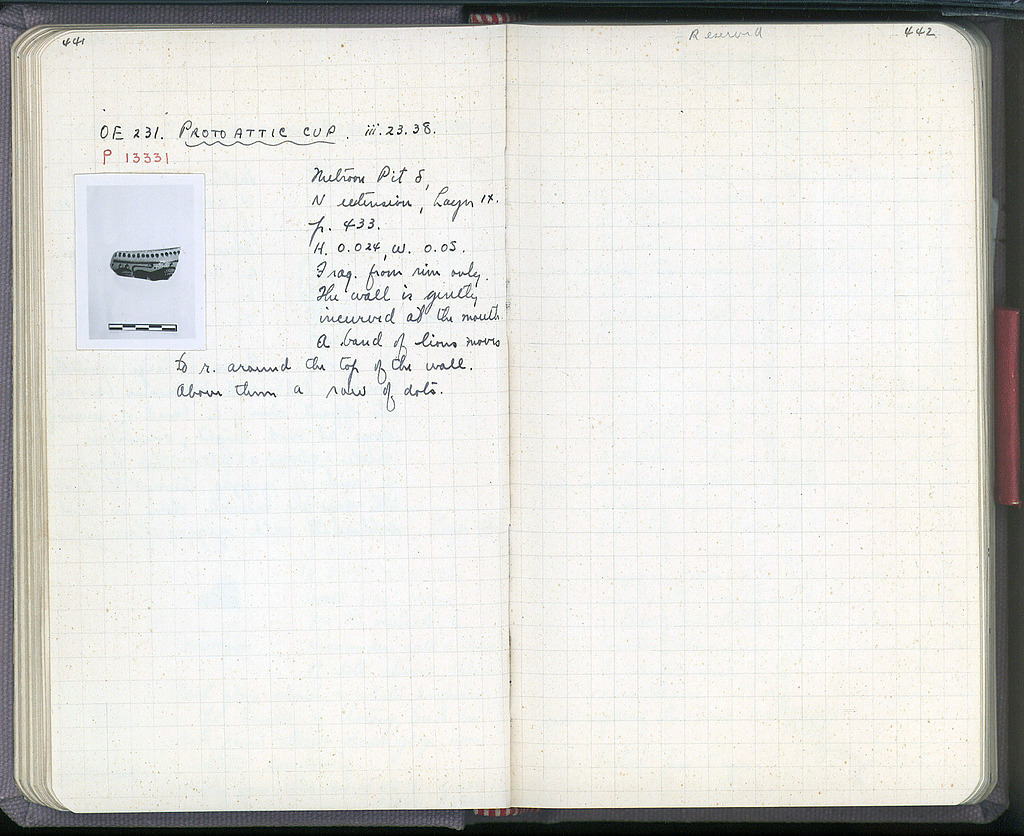 441
OE 231. PROTOATTIC CUP. iii.23.38.
P 13331
Metroon Pit δ,
N extension, Layer IX.
p. 433.
H. 0.024, W. 0.05.
Frag. from rim only.
The wall is gently
incurved at the mouth
A band of lions moves
to r. around the top of the wall.
Above them a row of dots.
Reserved
442